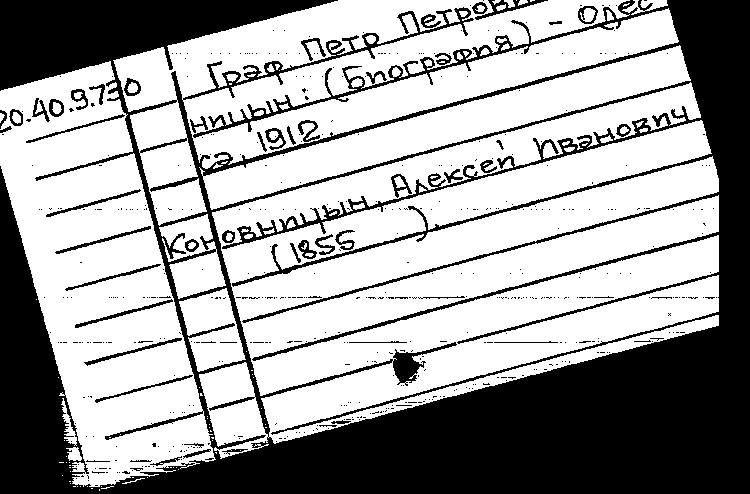 20.40.9.730
Граф Петр Петрови
ницын: (Биография) - Одес
са, 1912.
Коновницын, Алексей Иванович
(1855 ).